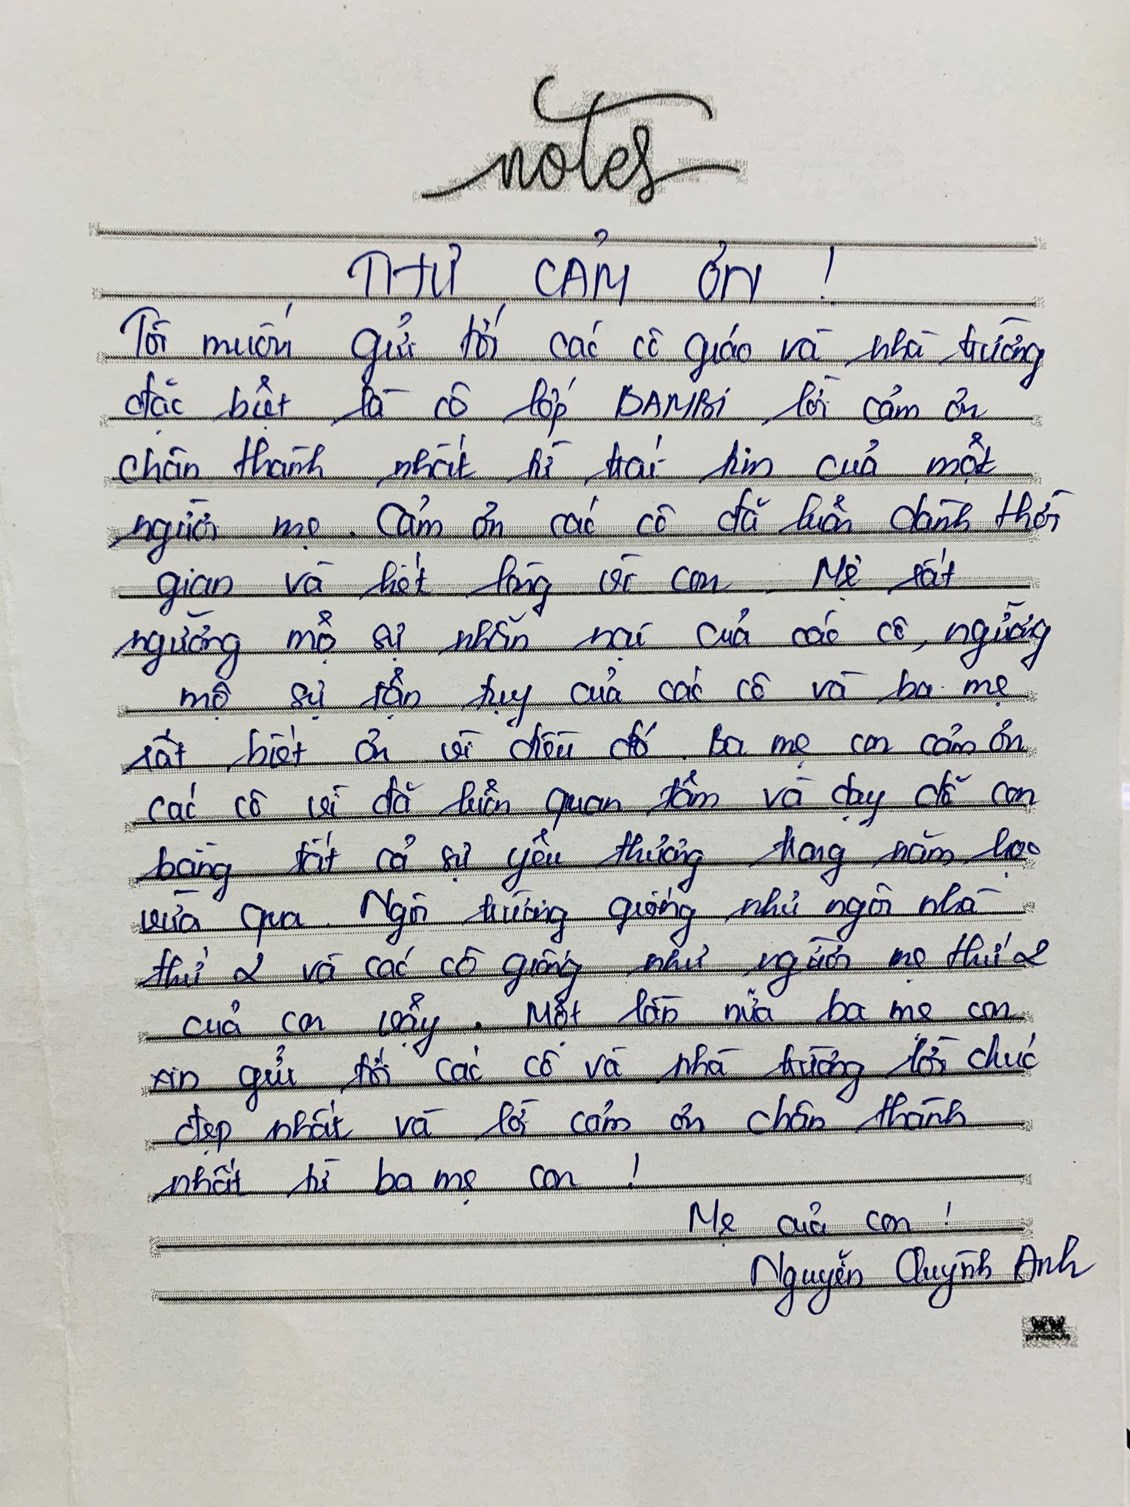 notes
THƯ CẢM ƠN !
Tôi muốn gửi tới các cô giáo và nhà trường
đặc biệt là cô lớp BAMBI lời cảm ơn
chân thành nhất từ trái tim của một
người mẹ. Cảm ơn các cô đã luôn dành thời
gian và hết lòng vì con. Mẹ rất
ngưỡng mộ sự nhẫn nại của các cô, ngưỡng
mộ sự tận tụy của các cô và ba mẹ
rất biết ơn vì điều đó. Ba mẹ con cảm ơn
các cô vì đã luôn quan tâm và dạy dỗ con
bằng tất cả sự yêu thương trong năm học
vừa qua. Ngôi trường giống như ngôi nhà
thứ 2 và các cô giống như người mẹ thứ 2
của con vậy. Một lần nữa ba mẹ con
xin gửi tới các cô và nhà trường lời chúc
đẹp nhất và lời cảm ơn chân thành
nhất từ ba mẹ con !
Mẹ của con !
Nguyễn Quỳnh Anh